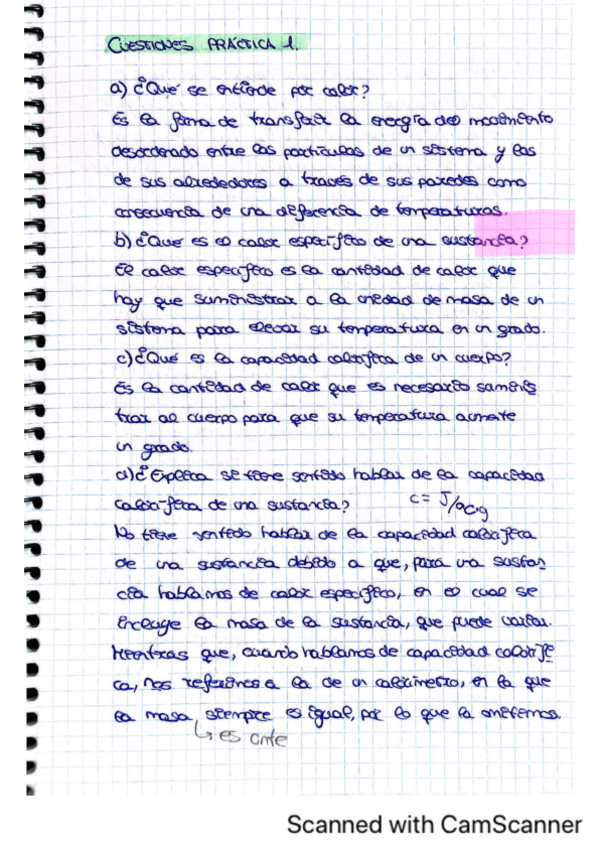 CUESTIONES PRÁCTICA 1.
a) ¿Qué se entiende por calor?
Es la forma de transferir la energía del movimiento
desordenado entre las partículas de un sistema y las
de sus alrededores a través de sus paredes como
consecuencia de una diferencia de temperaturas.
b) ¿Que es el calor específico de una sustancia?
El calor específico es la cantidad de calor que
hay que suministrar a la unidad de masa de un
sistema para elevar su temperatura en un grado.
c) ¿Qué es la capacidad calorífica de un cuerpo?
Es la cantidad de calor que es necesario suminis
trar al cuerpo para que su temperatura aumente
un grado.
d) ¿Explica se tiene sentido hablar de la capacidad
calorífica de una sustancia? c = J/ºC·g
No tiene sentido hablar de la capacidad calorífica
de una sustancia debido a que, para una sustan
cia hablamos de calor específico, en el cual se
incluye la masa de la sustancia, que puede variar.
Mientras que, cuando hablamos de capacidad calorífi
ca, nos referimos a la de un calorímetro, en la que
la masa, siempre es igual, por lo que la omitimos.
↳ es cnte
Scanned with CamScanner